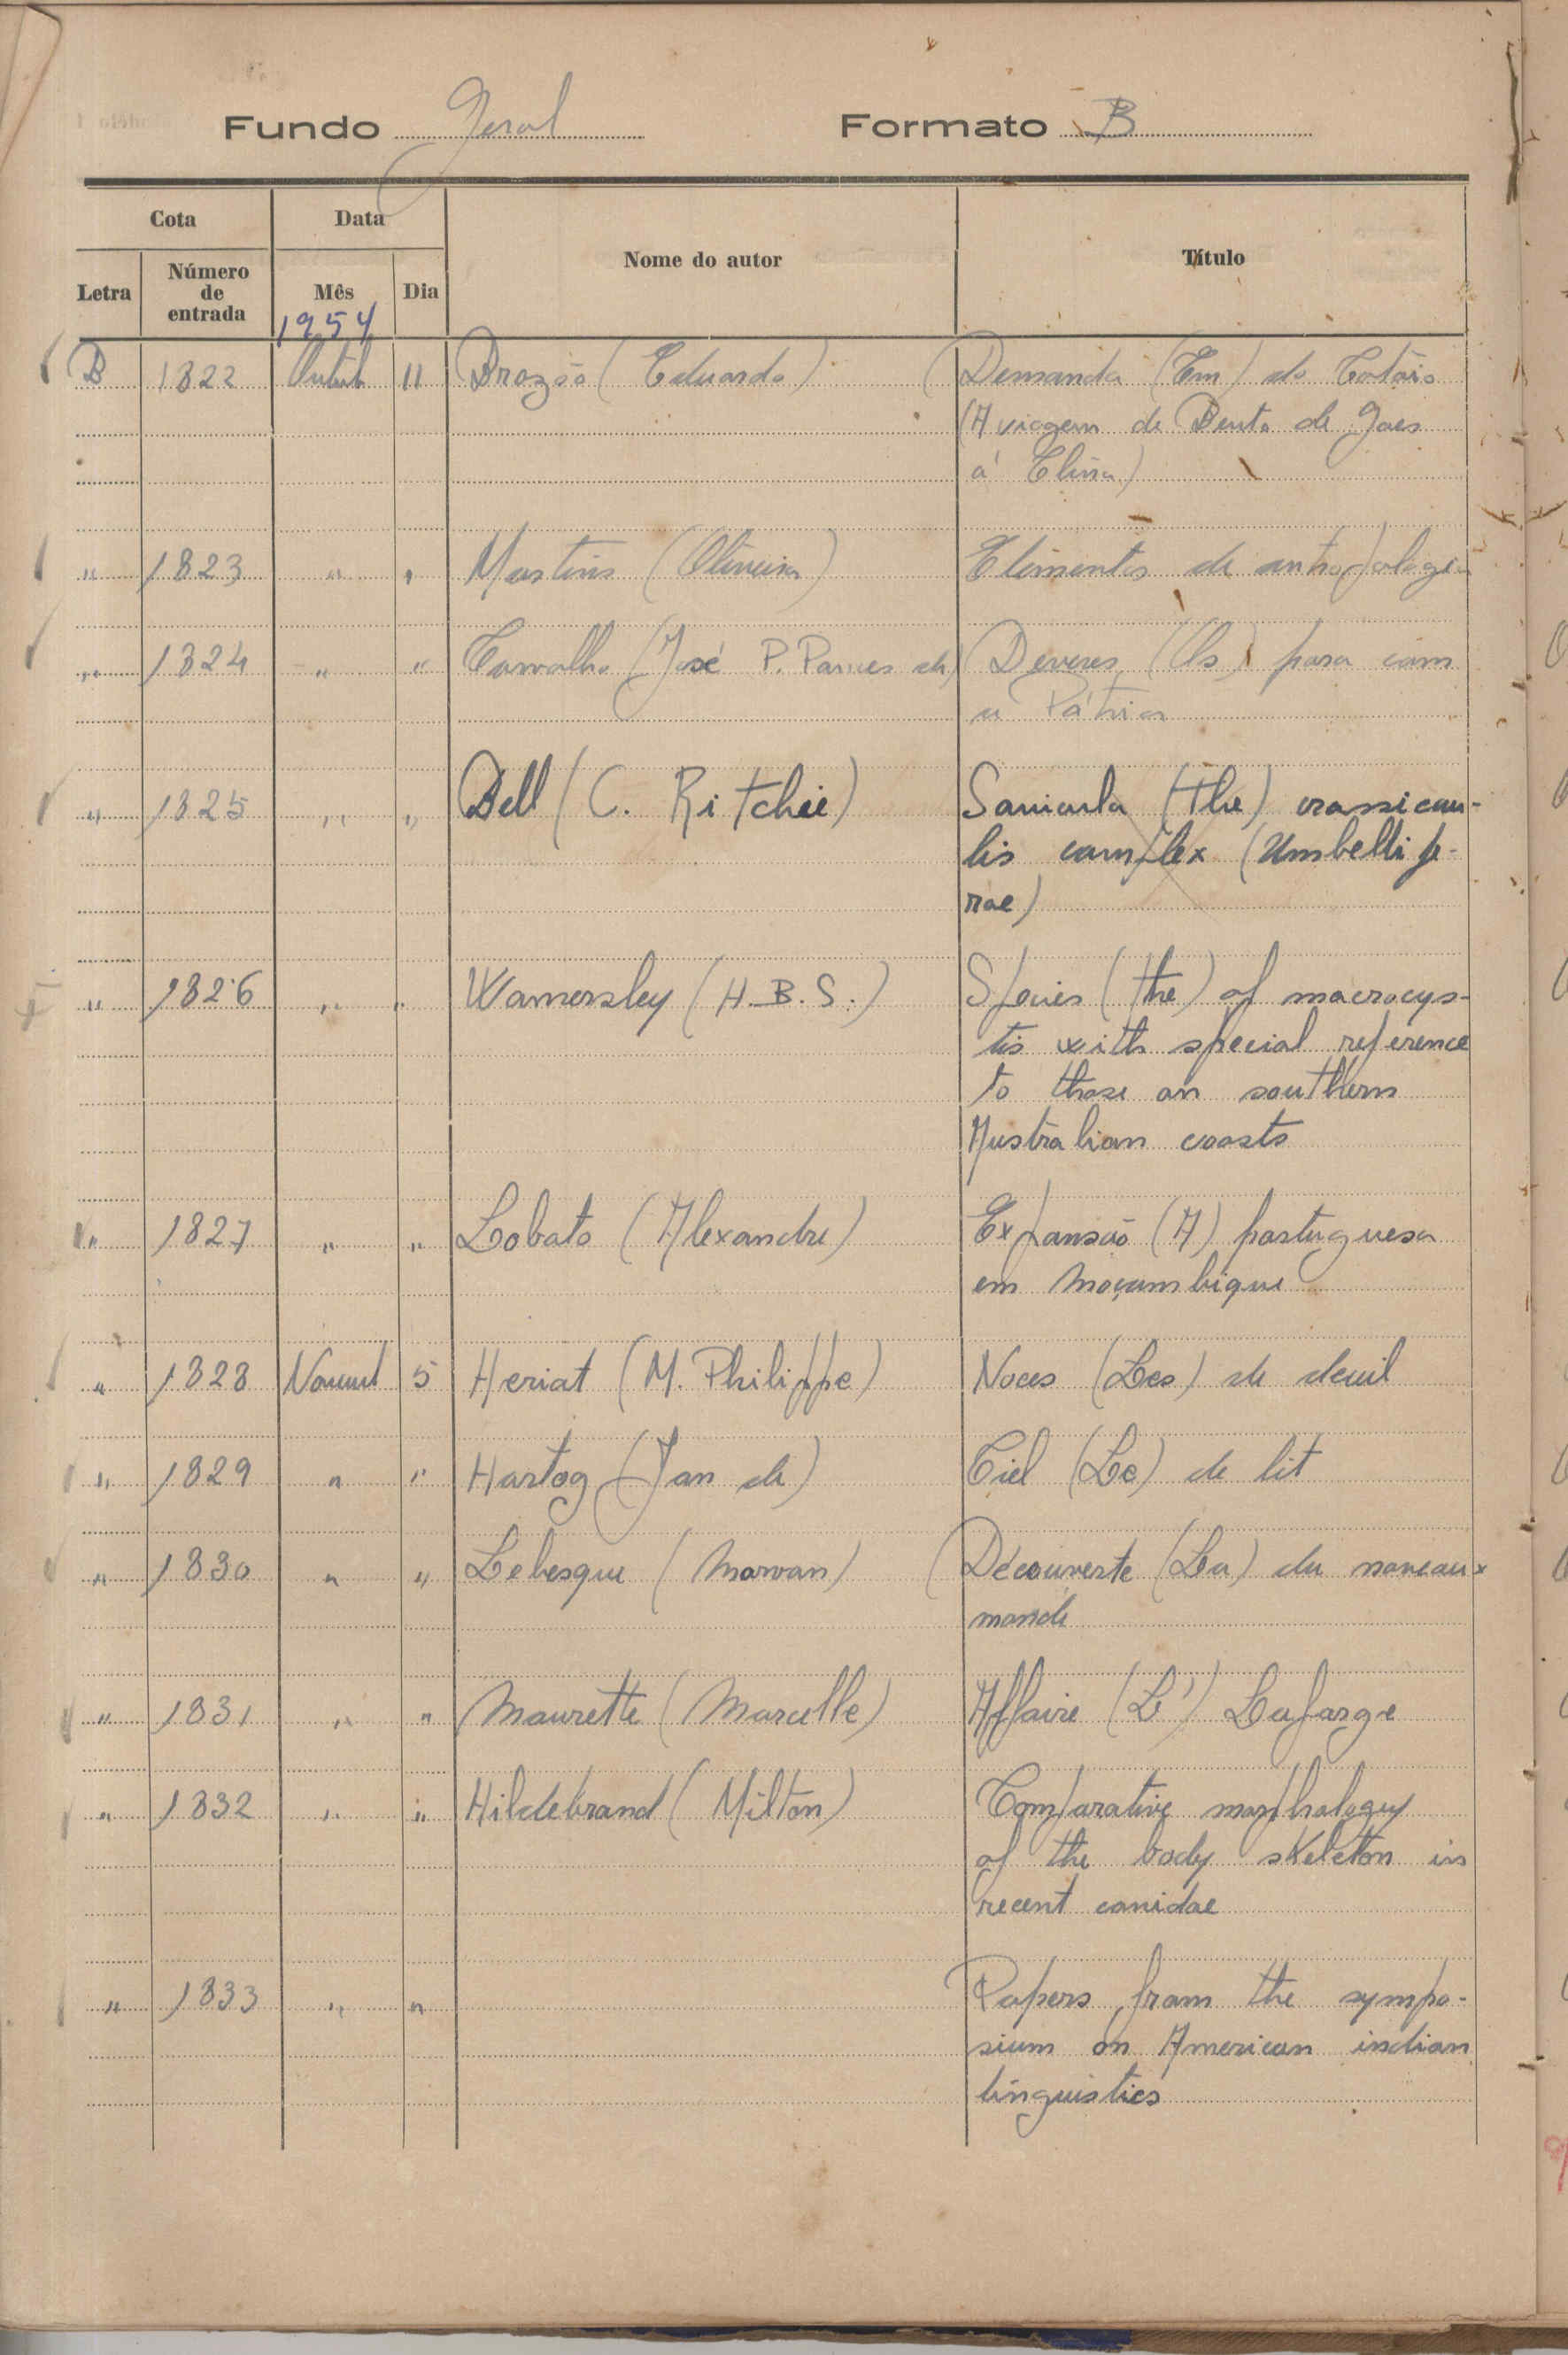 Fundo Geral Formato B
Cota Data Nome do autor Título
Letra Número de entrada Mês Dia
1954
B 1822 Outub 11 Brazão (Eduardo) Demanda (Em) do Catáio
(A viagem de Bento de Goes
á China)
" 1823 " " Martins (Oliveira) Elementos de antropologia
" 1824 " " Carvalho (José P. de) Deveres (Os) para com
a Pátria
" 1825 " " Bell (C. Ritchie) Sanicula (the) crassicau-
lis complex (Umbellife-
rae)
" 1826 " " Womersley (H.B.S.) Species (the) of macrocys-
tis with special reference
to those on southern
Australian coasts
" 1827 " " Lobato (Alexandre) Expansão (A) portuguesa
em Moçambique
" 1828 Novemb 5 Heriat (M. Philippe) Noces (Les) de deuil
" 1829 " " Hartog (Jan de) Ciel (Le) de lit
" 1830 " " Lebesque (Morvan) Découverte (La) du noveaux
monde
" 1831 " " Maurette (Marcelle) Affaire (L') Lafarge
" 1832 " " Hildebrand (Milton) Comparative morphology
of the body skeleton in
recent canidae
" 1833 " " Papers from the sympo-
sium on American indian
linguistics